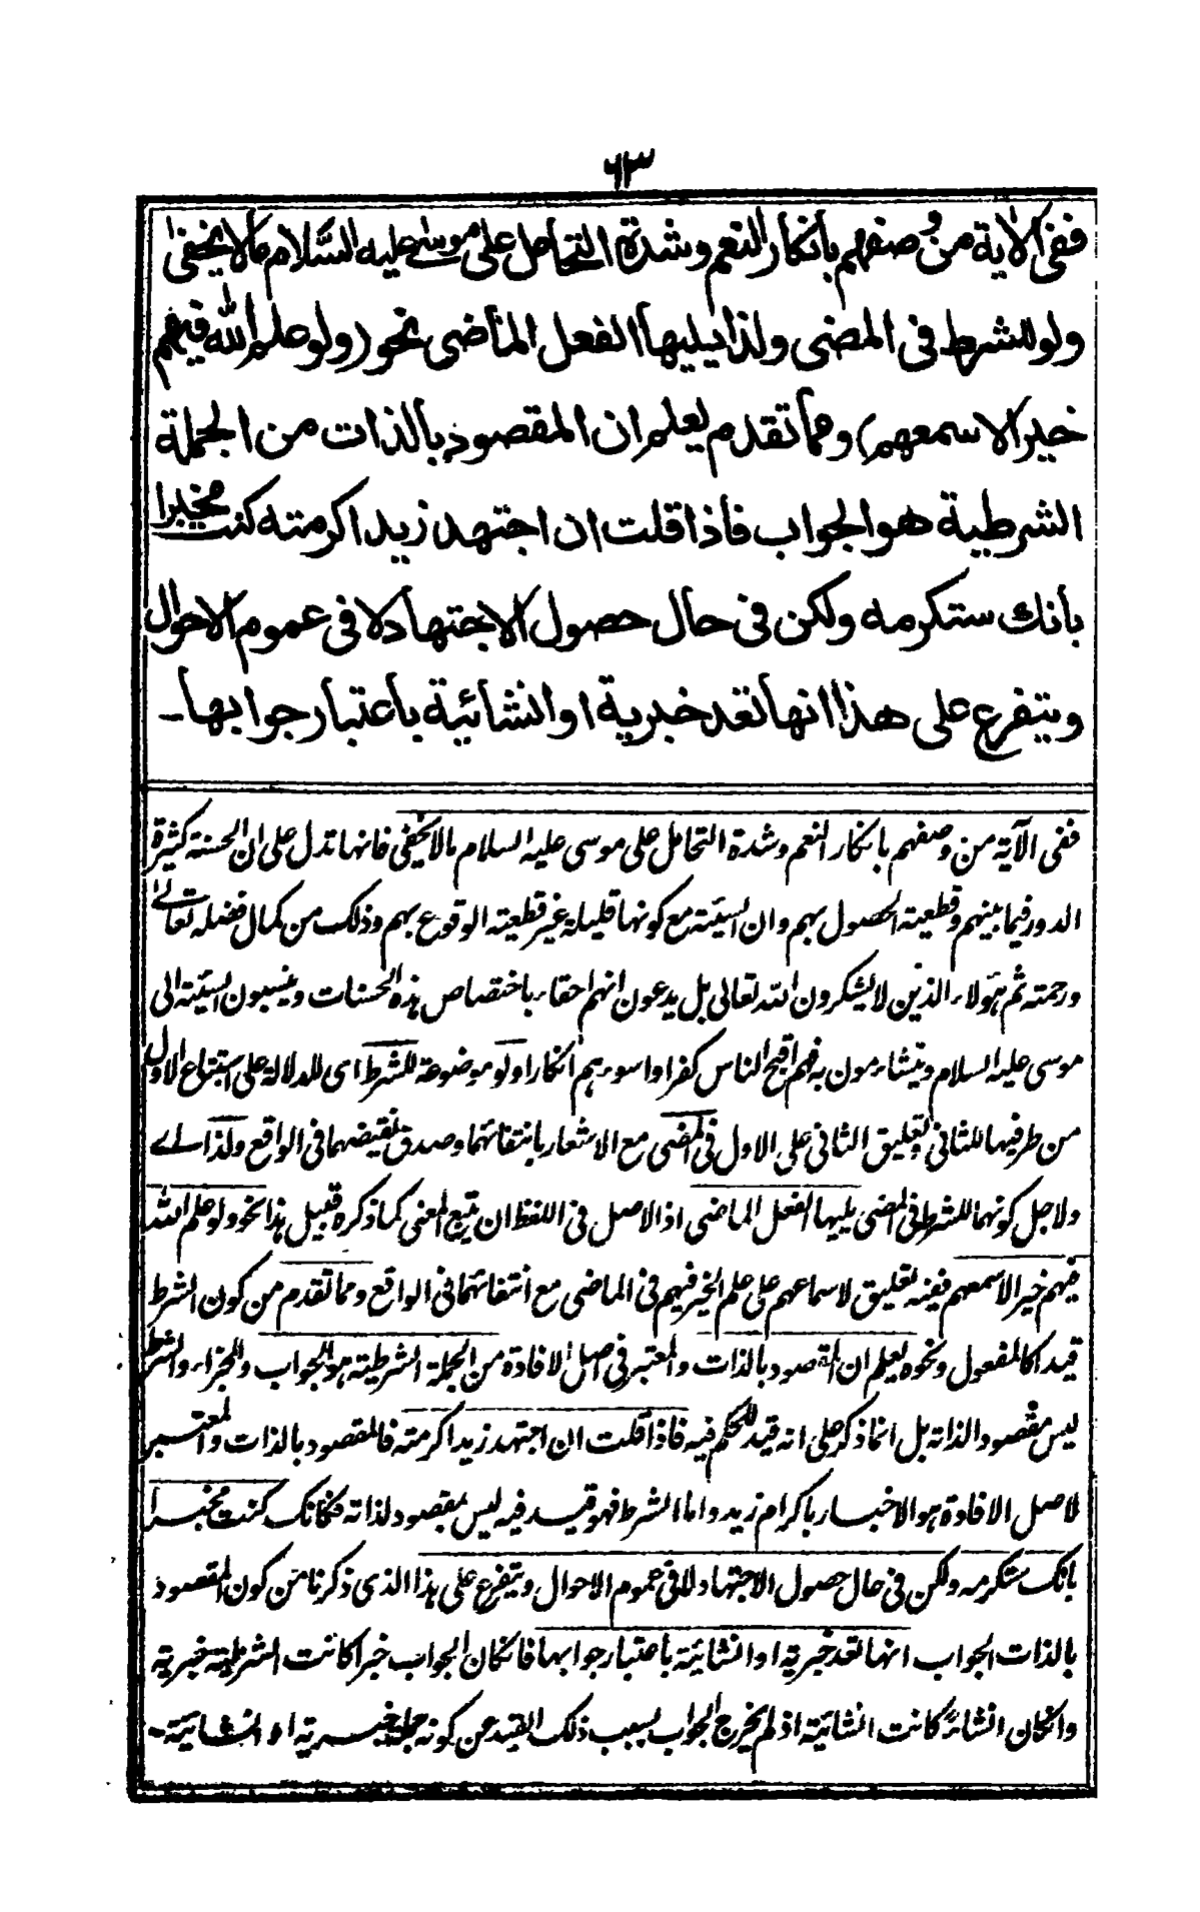 ٦٣
ففي الاية من وصفهم بانكار النعم وشدة التحامل على موسى عليه السلام مالا يخفى
ولو للشرط في المضى ولذا يليها الفعل الماضى نحو (ولو علم الله فيهم
خيرا لاسمعهم) ومما تقدم يعلم ان المقصود بالذات من الجملة
الشرطية هو الجواب فاذا قلت ان اجتهد زيد اكرمته كنت مخبرا
بانك ستكرمه ولكن في حال حصول الاجتهاد لا في عموم الاحوال
ويتفرع على هذا انها تعد خبرية او انشائية باعتبار جوابها ـ
ففى الآية من وصفهم بانكار النعم وشدة التحامل على موسى عليه السلام مالا يخفى فانها تدل على ان الحسنة كثيرة
الدور فيما بينهم وقطعية الحصول بهم وان السيئة مع كونها قليلة غير قطعية الوقوع بهم وذلك من كمال فضله تعالى
ورحمته ثم هؤلاء الذين لا يشكرون الله تعالى بل يدعون انهم احقاء باختصاص هذه الحسنات وينسبون السيئة الى
موسى عليه السلام ويتشاءمون به فهم اقبح الناس كفرا واسوءهم انكارا ولو موضوعة للشرط اى للدلالة على استتباع الاول
من طرفيها للثانى وتعليق الثانى على الاول فى المضى مع الاشعار بانتفائهما وصدق نقيضهما فى الواقع ولذا اے
ولاجل كونها للشرط فى المضى يليها الفعل الماضى اذ الاصل فى اللفظ ان يتبع المعنى كما ذكره قبيل هذا نحو ولو علم الله
فيهم خيرا لأسمعهم ففيه تعليق لاسماعهم على علم الخير فيهم فى الماضى مع انتفائهما فى الواقع ومما تقدم من كون الشرط
قيدا كالمفعول ونحوه يعلم ان المقصود بالذات والمعتبر فى اصل الافادة من الجملة الشرطية هو الجواب والجزاء والشرط
ليس مقصودا لذاته بل انما ذكر على انه قيد للحكم فيه فاذا قلت ان اجتهد زيد اكرمته فالمقصود بالذات والمعتبر
لاصل الافادة هو الاخبار باكرام زيد واما الشرط فهو قيد فيه ليس بمقصود لذاته فكانك كنت مخبرا
بانك ستكرمه ولكن فى حال حصول الاجتهاد لا فى عموم الاحوال ويتفرع على هذا الذى ذكرنا من كون المقصود
بالذات الجواب انها تعد خبرية او انشائية باعتبار جوابها فانكان الجواب خبرا كانت الشرطية خبرية
وانكان انشاءً كانت انشائية اذ لم يخرج الجواب بسبب ذلك القيد عن كونه جملة خبرية او انشائية ـ